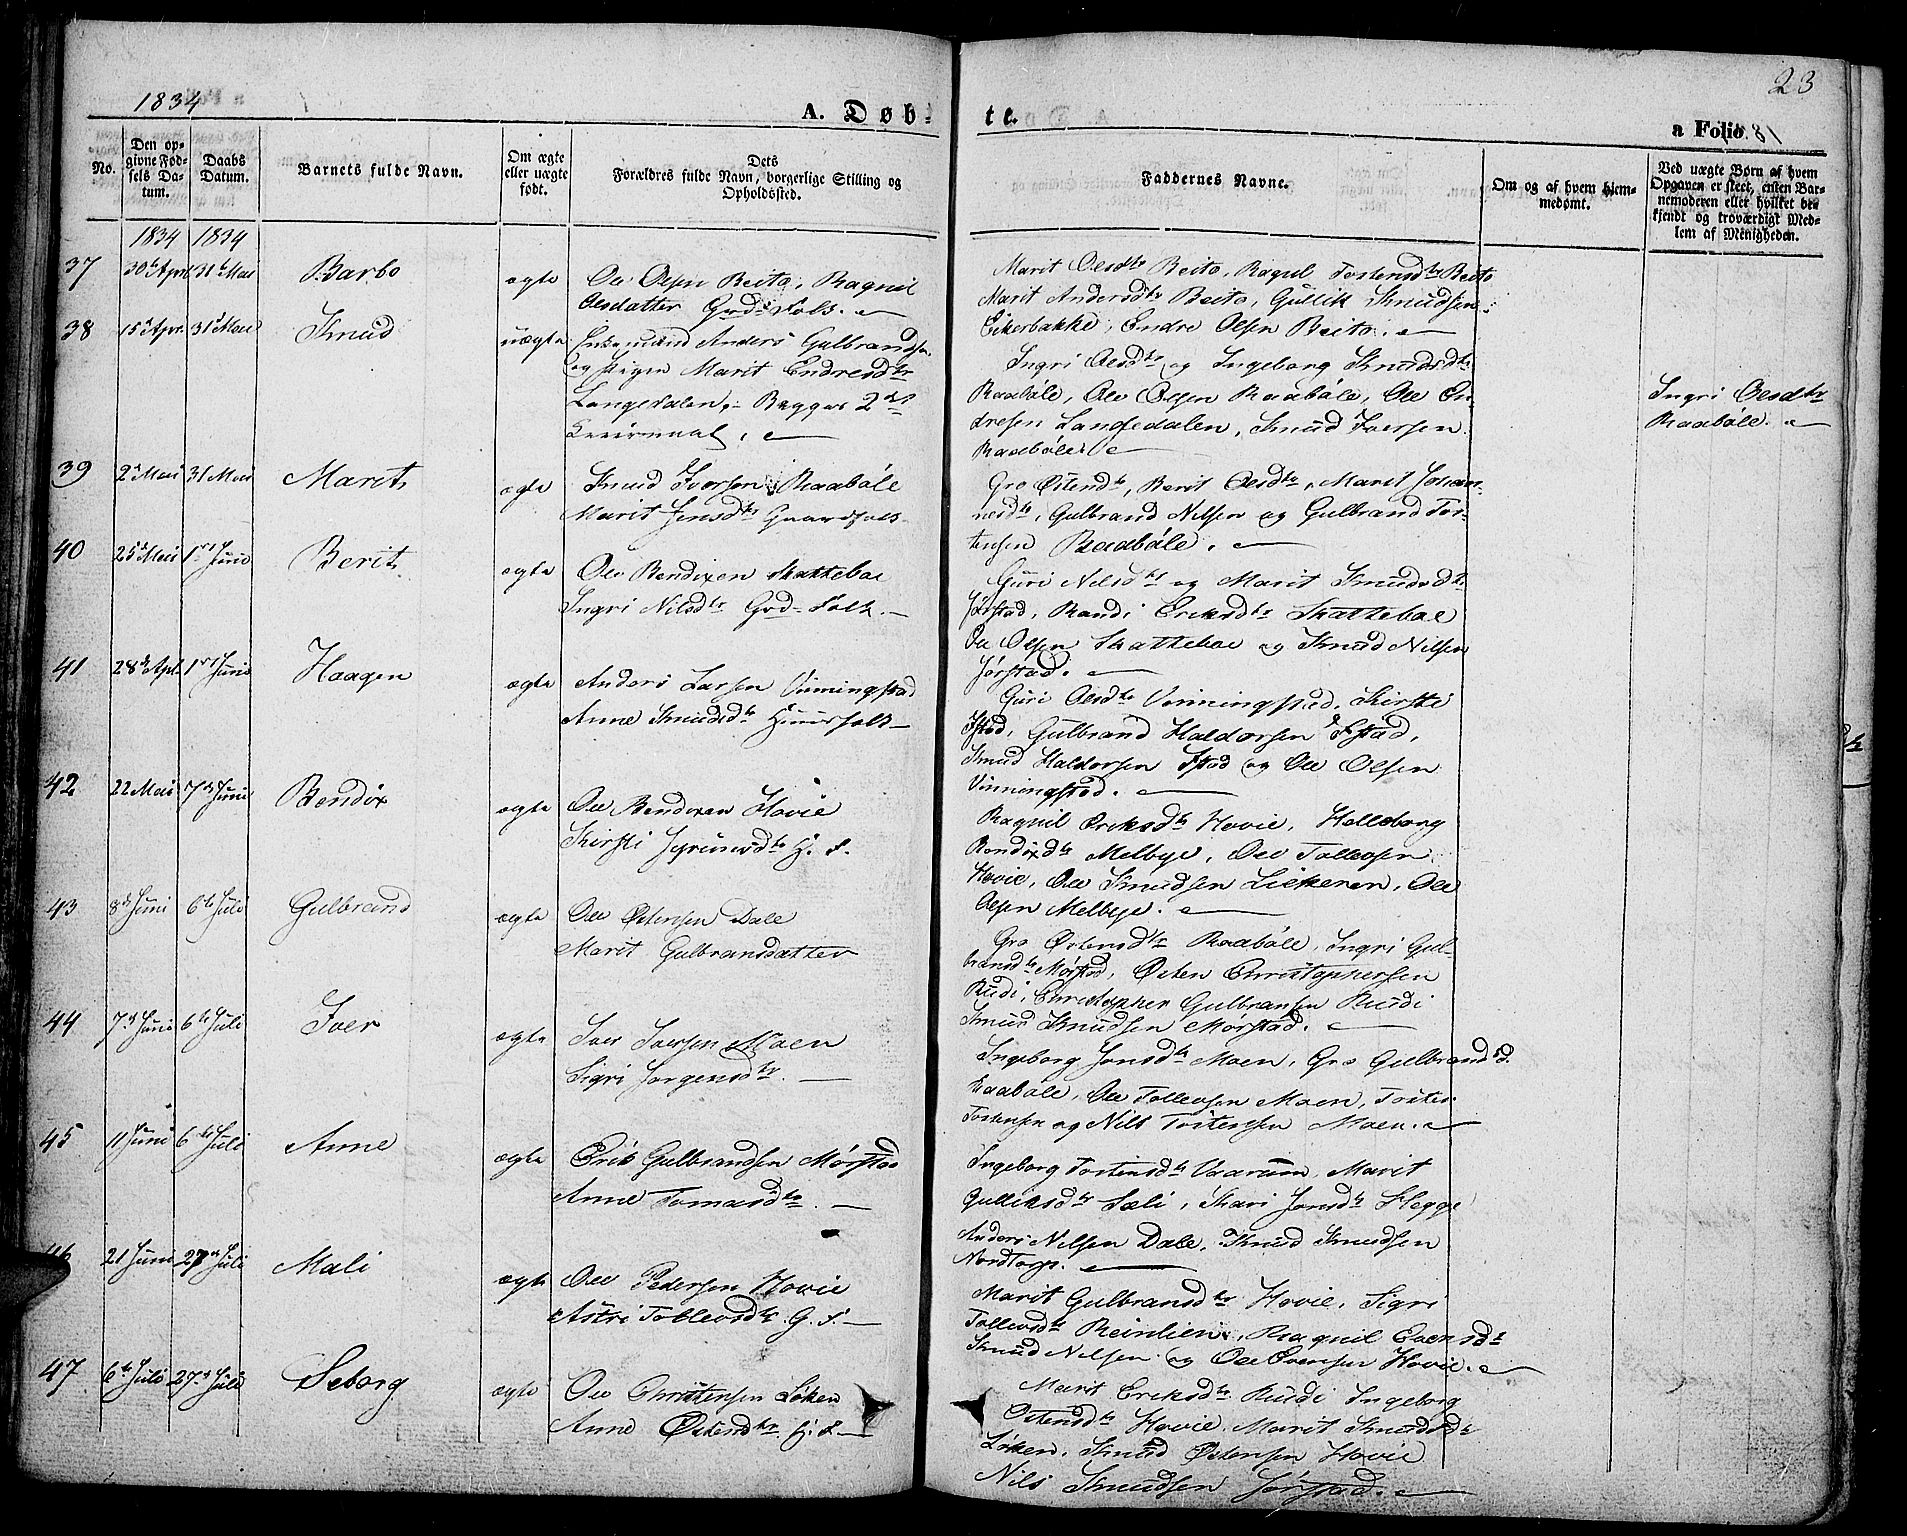 1834
23
A. Døb-
te.
a Folio
No.
Den op-
givne Fød-
sels Da-
tum.
Daabs
Datum.
Barnets fulde Navn.
Om ægte
eller uægte
født.
Dets
Forældres fulde Navn, borgerlige Stilling og
Opholdssted.
Faddernes Navne.
Om og af hvem hjem-
medøbt.
Ved uægte Børn af hvem
Opgaven er skeet, enten Bar-
nemoderen eller hvilket be-
kjendt og troværdigt Med-
lem af Menigheden.
1834 1834
37 30te Apr 31te Mai Barbo ægte Ole Olsen Beito, Ragnil
Olsdatter Grd: Folk.
Marit Olesdtr Beito, Ragnil Tostensdtr Beito
Marit Andersdtr Beito, Gullik Knudsen
Eikerbakke, Endre Olsen Beito.
38 15d Apr 31d Mai Knud uægte Enkemand Anders Gulbrandsen
og Pigen Marit Endresdtr
Langedalen, Begges 2det
Leiermaal.
Ingri Olesdtr og Ingeborg Knudsdtr
Raabøle, Ole Olsen Raabøle, Ole En-
dresen Langedalen, Knud Iversen
Raabøle.
Ingri Olesdtr
Raabøle.
39 2d Mai 31 Mai Marit ægte Knud Iversen Raabøle
Marit Jensdtr Gaardfolk
Gro Østensdtr, Berit Olesdtr, Marit Johan-
nesdtr, Gulbrand Nilsen og Gulbrand Tor-
stensen Raabøle.
40 25d Mai 1ste Juni Berit ægte Ole Bendixen Skatteboe
Ingri Nilsdtr Grd-Folk.
Guri Nilsdtr og Marit Knudsdtr
Jørstad, Randi Eriksdtr Skatteboe
Ole Olsen Skatteboe og Knud Nilsen
Jørstad.
41 28de Apl 1ste Juni Haagen ægte Anders Larsen Vinningstad
Anne Knudsdtr Huusfolk
Guri Olesdtr Vinningstad, Kirsti
Istad, Gulbrand Haldorsen Istad,
Knud Haldorsen Istad og Ole Olsen
Vinningstad.
42 22 Mai 7de Juni Bendix ægte Ole Bendixen Hovie
Kirsti Jgrunsdtr H. F.
Ragnil Eriksdtr Hovie, Helleborg
Bendixdtr Melbye, Ole Tollevsen
Hovie, Ole Knudsen Liekeren, Ole
Olsen Melbye.
43 8d Juni 6te Juli Gulbrand ægte Ole Østensen Dale
Marit Gulbransdatter
Gro Østensdtr Raabøle, Ingri Gul-
bransdtr Mørstad, Østen Christophersen
Rudi, Christopher Gulbransen Rudi
Knud Knudsen Mørstad.
44 7de Juni 6te Juli Iver ægte Iver Iversen Moen
Sigri Jorgensdtr.
Ingeborg Jonsdtr Moen, Gro Gulbrandsd.
Raabøle, Ole Tollevsen Moen, Tosten
Tostensen og Nils Tostensen Moen.
45 11 Juni 6te Juli Anne ægte Erik Gulbrandsen Mørstad
Anne Tomasdtr.
Ingeborg Tostensdtr Vaarum, Marit
Gulliksdtr Sæli, Kari Jonsdtr Hegge
Anders Nilsen Dale, Knud Knudsen
Nordtorp.
46 21 Juni 27de Juli Mali ægte Ole Pedersen Hovie
Astri Tollevsdtr G. F.
Marit Gulbransdtr Hovie, Sigri
Tollevsdtr Reinlien, Ragnil Evensdtr
Knud Nilsen og Ole Evensen Hovie.
47 6te Juli 27de Juli Seborg ægte Ole Christensen Løken
Anne Østensdtr H. F.
Marit Eriksdtr Rudi, Ingeborg
Østensdtr Hovie, Marit Knudsdtr
Løken, Knud Østensen Hovie
Nils Knudsen Jørstad.